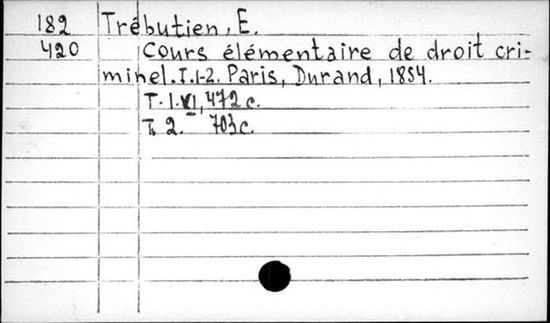 182 Trébutien, E.
420 Cours élémentaire de droit cri-
minel. T. 1-2. Paris, Durand, 1854.
T. 1. VI, 472 c.
T. 2. 703 c.